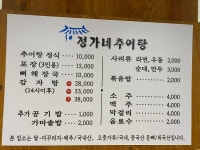 정가네추어탕
추어탕 정식 - 10,000
포장(2인용) - 15,000
뼈해장국 - 10,000
감자탕 - 28,000
(14시이후) - 33,000
- 38,000
추가공기밥 - 1,000
가마솥밥 - 2,000
사리류 라면, 우동 2,000
순대, 만두 3,000
볶음밥 - 2,000
소주 - 4,000
맥주 - 4,000
막걸리 - 4,000
음료수 - 2,000